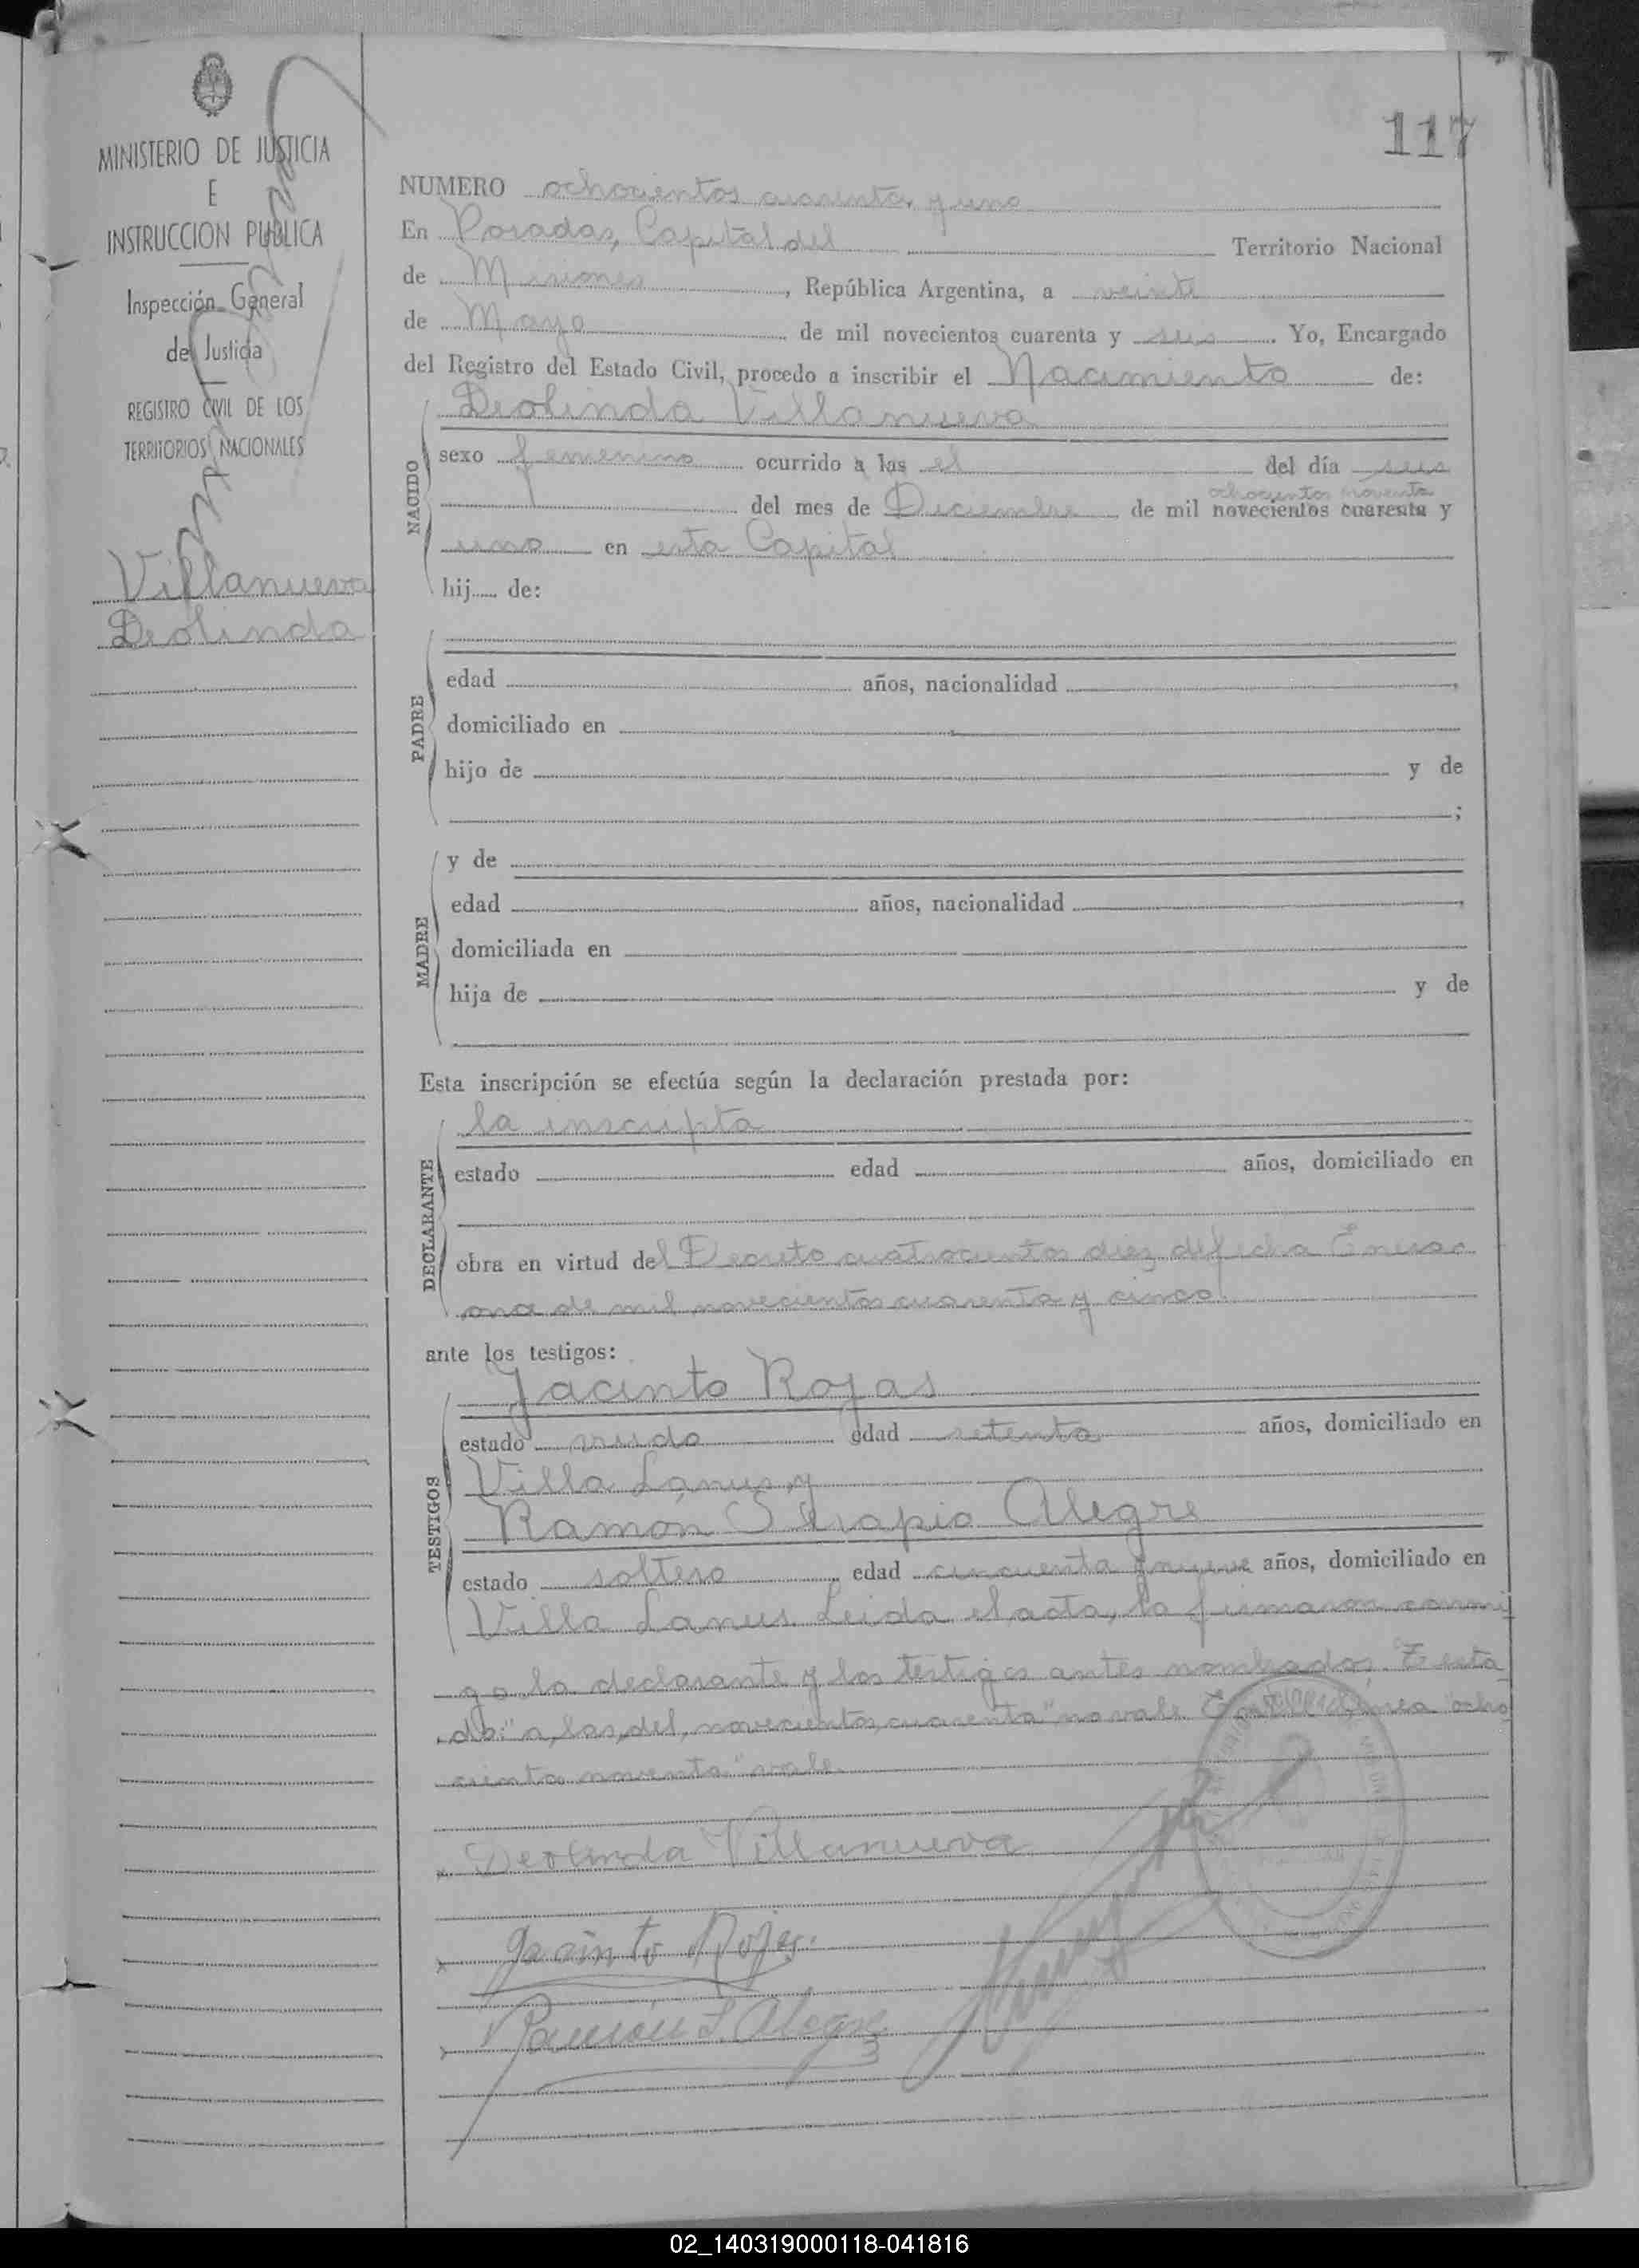 117
MINISTERIO DE JUSTICIA
E
INSTRUCCION PUBLICA
Inspección General
de Justicia
REGISTRO CIVIL DE LOS
TERRITORIOS NACIONALES
Villanueva
Deolinda
NUMERO ochocientos cuarenta y uno
En Posadas, Capital del Territorio Nacional
de Misiones, República Argentina, a veinte
de Mayo de mil novecientos cuarenta y seis. Yo, Encargado
del Registro del Estado Civil, procedo a inscribir el Nacimiento de:
Deolinda Villanueva
NACIDO
sexo femenino ocurrido a las el del día seis
ochocientos noventa
del mes de Diciembre de mil novecientos cuarenta y
uno en esta Capital
hij..... de:
PADRE
edad años, nacionalidad ,
domiciliado en
hijo de y de
;
MADRE
y de
edad años, nacionalidad ,
domiciliada en
hija de y de
Esta inscripción se efectúa según la declaración prestada por:
DECLARANTE
la inscripta
estado edad años, domiciliado en
obra en virtud del Decreto cuatrocientos diez de fecha Enero
once de mil novecientos cuarenta y cinco
ante los testigos:
TESTIGOS
Jacinto Rojas
estado viudo edad setenta años, domiciliado en
Villa Lanus y
Ramón Serapio Alegre
estado soltero edad cincuenta y nueve años, domiciliado en
Villa Lanus. Leida el acta, la firmaron conmi
go la declarante y los testigos antes nombrados. Testa
do: "a, las, del, novecientos, cuarenta" no vale. Entre línea "ocho
cientos noventa" vale.
Deolinda Villanueva
Jacinto Rojas.
Ramón S. Alegre
02_140319000118-041816